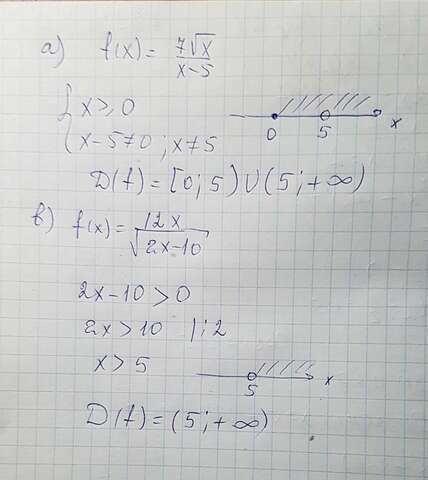 а) f(x) = 7√x / x-5
{ x ≥ 0
x-5 ≠ 0 ; x ≠ 5
0 5 x
D(f) = [0; 5) ∪ (5; +∞)
в) f(x) = 12x / √2x-10
2x-10 > 0
2x > 10 | : 2
x > 5
5 x
D(f) = (5; +∞)